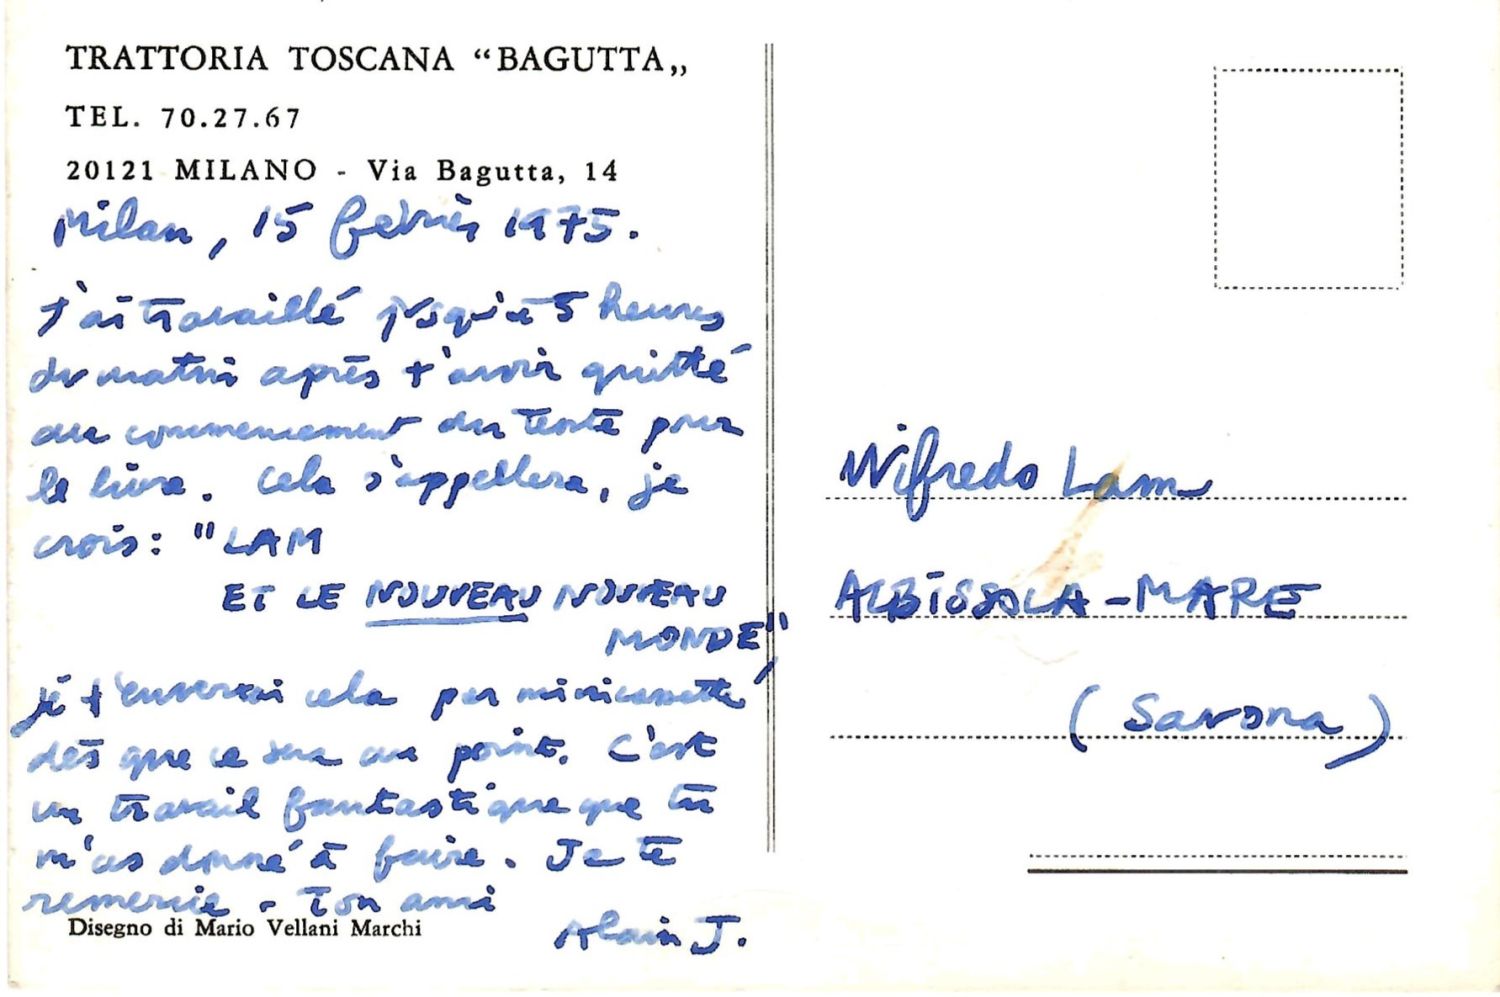 TRATTORIA TOSCANA “BAGUTTA„
TEL. 70.27.67
20121 MILANO - Via Bagutta, 14
Milan, 15 février 1975.
J'ai travaillé jusqu'à 5 heures
du matin après t'avoir quitté
au commencement du texte pour
le livre. Cela s'appellera, je
crois: "LAM
ET LE NOUVEAU NOUVEAU
MONDE"
je t'enverrai cela par minicassette
dès que ce sera au point. C'est
un travail fantastique que tu
m'as donné à faire. Je te
remercie - Ton ami
Alain J.
Disegno di Mario Vellani Marchi
Wifredo Lam
ALBISSOLA-MARE
(Savona)